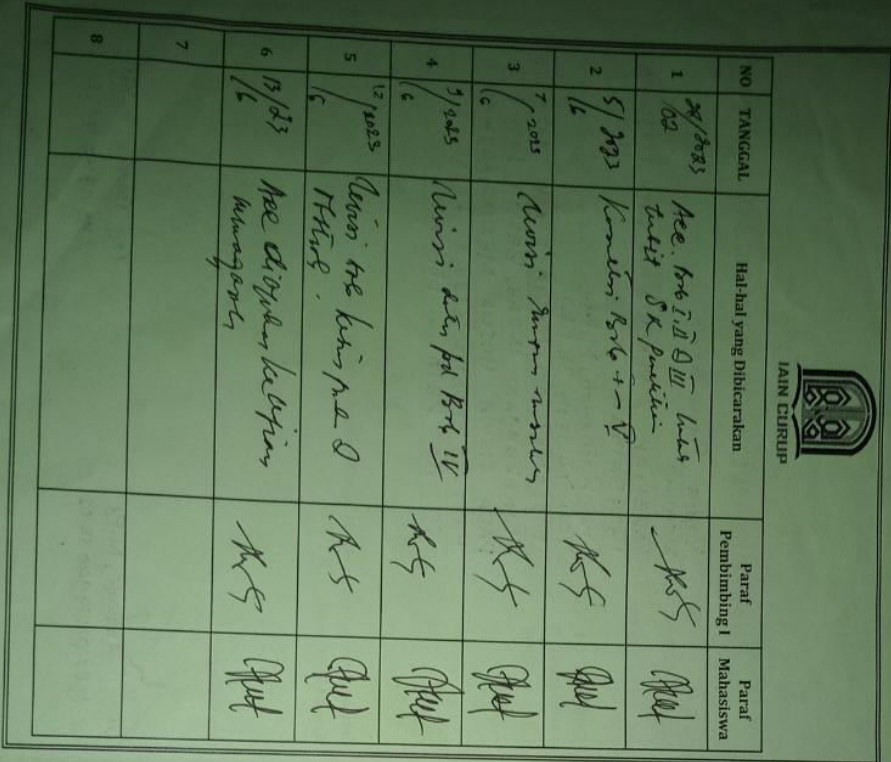 IAIN CURUP
NO TANGGAL Hal-hal yang Dibicarakan Paraf Pembimbing I Paraf Mahasiswa
1 28/2023 /02 Acc. Bab I, II & III untuk
SK penelitian
2 5/2023 /6 Koreksi Bab I - V
3 7/2023 /6 Revisi rumusan masalah
4 9/2023 /6 Revisi data pd Bab IV
5 12/2023 /6 Revisi bab kesimpulan &
6 13/23 /6 Acc diajukan ke ujian
munaqasah
7
8